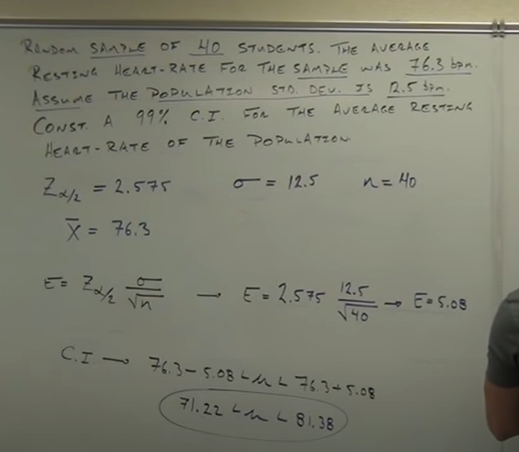 RANDOM SAMPLE OF 40 STUDENTS. THE AVERAGE
RESTING HEART-RATE FOR THE SAMPLE WAS 76.3 bpm.
ASSUME THE POPULATION STD. DEV. IS 12.5 bpm.
CONST. A 99% C.I. FOR THE AVERAGE RESTING
HEART-RATE OF THE POPULATION
Z α/2 = 2.575 σ = 12.5 n = 40
X̄ = 76.3
E = Z α/2 σ/√n → E = 2.575 12.5/√40 → E = 5.08
C.I. → 76.3 - 5.08 < μ < 76.3 + 5.08
71.22 < μ < 81.38